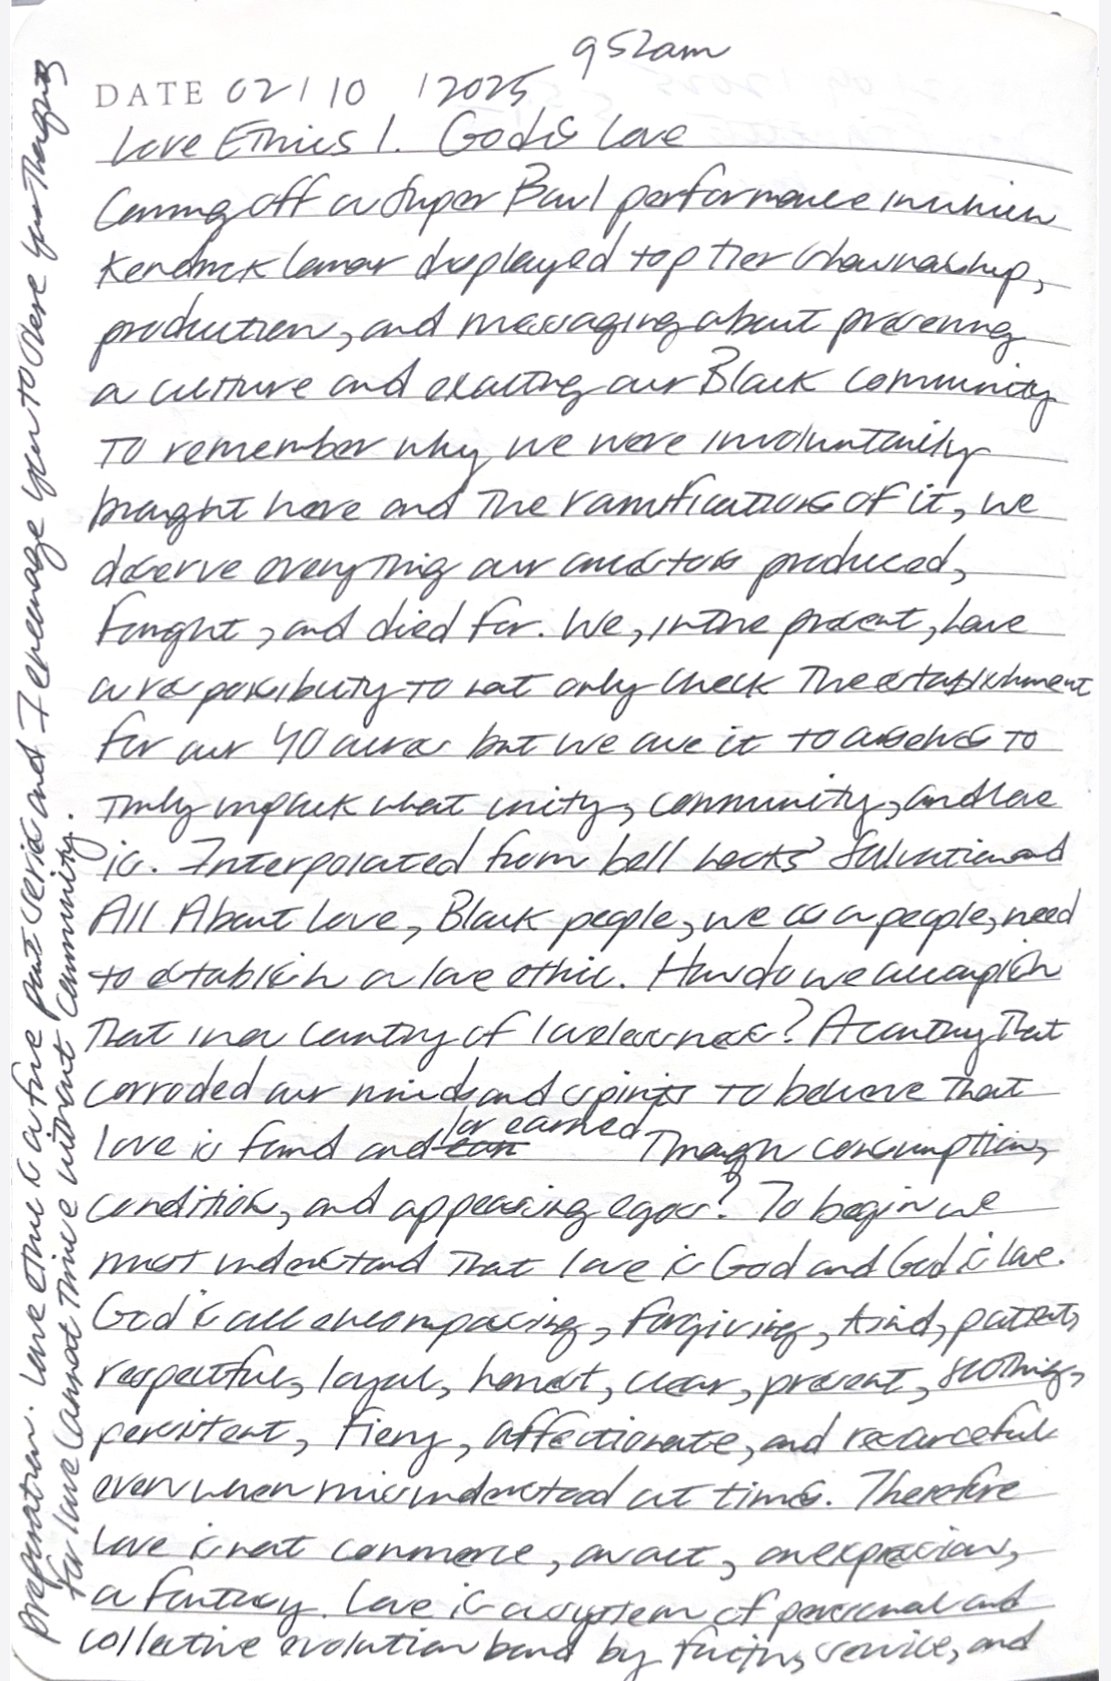 952am
DATE 02/10/2025
Love Ethics 1. God is Love
Coming off a Super Bowl performance in which
Kendrick Lamar displayed top tier showmanship,
production, and messaging about preserving
a culture and exalting our Black community
to remember why we were involuntarily
brought here and the ramifications of it, we
deserve everything our ancestors produced,
fought, and died for. We, in the present, have
a responsibility to not only check the establishment
for our 40 acres but we owe it to ourselves to
truly unpack what unity, community, and love
is. Interpolated from bell hooks' Salvation and
All About Love, Black people, we as a people, need
to establish a love ethic. How do we accomplish
that in a country of lovelessness? A country that
corroded our minds and spirits to believe that
love is found and or earned through consumption,
condition, and appeasing egos? To begin we
must understand that love is God and God is love.
God is all encompassing, forgiving, kind, patient,
respectful, loyal, honest, clear, present, soothing,
persistent, fiery, affectionate, and resourceful
even when misunderstood at times. Therefore
love is not commerce, an act, an expression,
a fantasy. Love is a system of personal and
collective evolution bound by faith, service, and
preparation. Love ethic is a five part series and I encourage you to share your thoughts
for love cannot thrive without community.